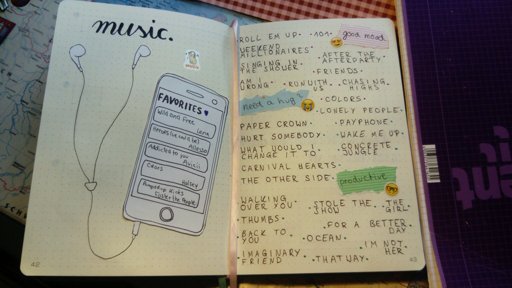 music.
FAVORITES
Wild and Free
Lena
Alessia
Addicted to you
Avicii
Colors
Halsey
Pumped up kicks
Foster the People
42
ROLL EM UP · 101 ·
good mood
WEEKEND
MILLIONAIRES
SINGING IN
THE SHOWER
AFTER THE
AFTERPARTY
· FRIENDS ·
AM I
WRONG
· RUN WITH
US
CHASING
HIGHS
need a hug?
· COLORS ·
· LONELY PEOPLE ·
PAPER CROWN ·
· PAYPHONE ·
HURT SOMEBODY ·
· WAKE ME UP ·
WHAT WOULD I
CHANGE IT TO
CONCRETE
JUNGLE
CARNIVAL HEARTS ·
THE OTHER SIDE ·
productive
WALKING
OVER YOU
· STOLE THE
SHOW
· THE
GIRL
THUMBS ·
· FOR A BETTER
DAY
BACK TO
YOU
· OCEAN ·
· I'M NOT
HER
IMAGINARY
FRIEND
· THAT WAY ·
43